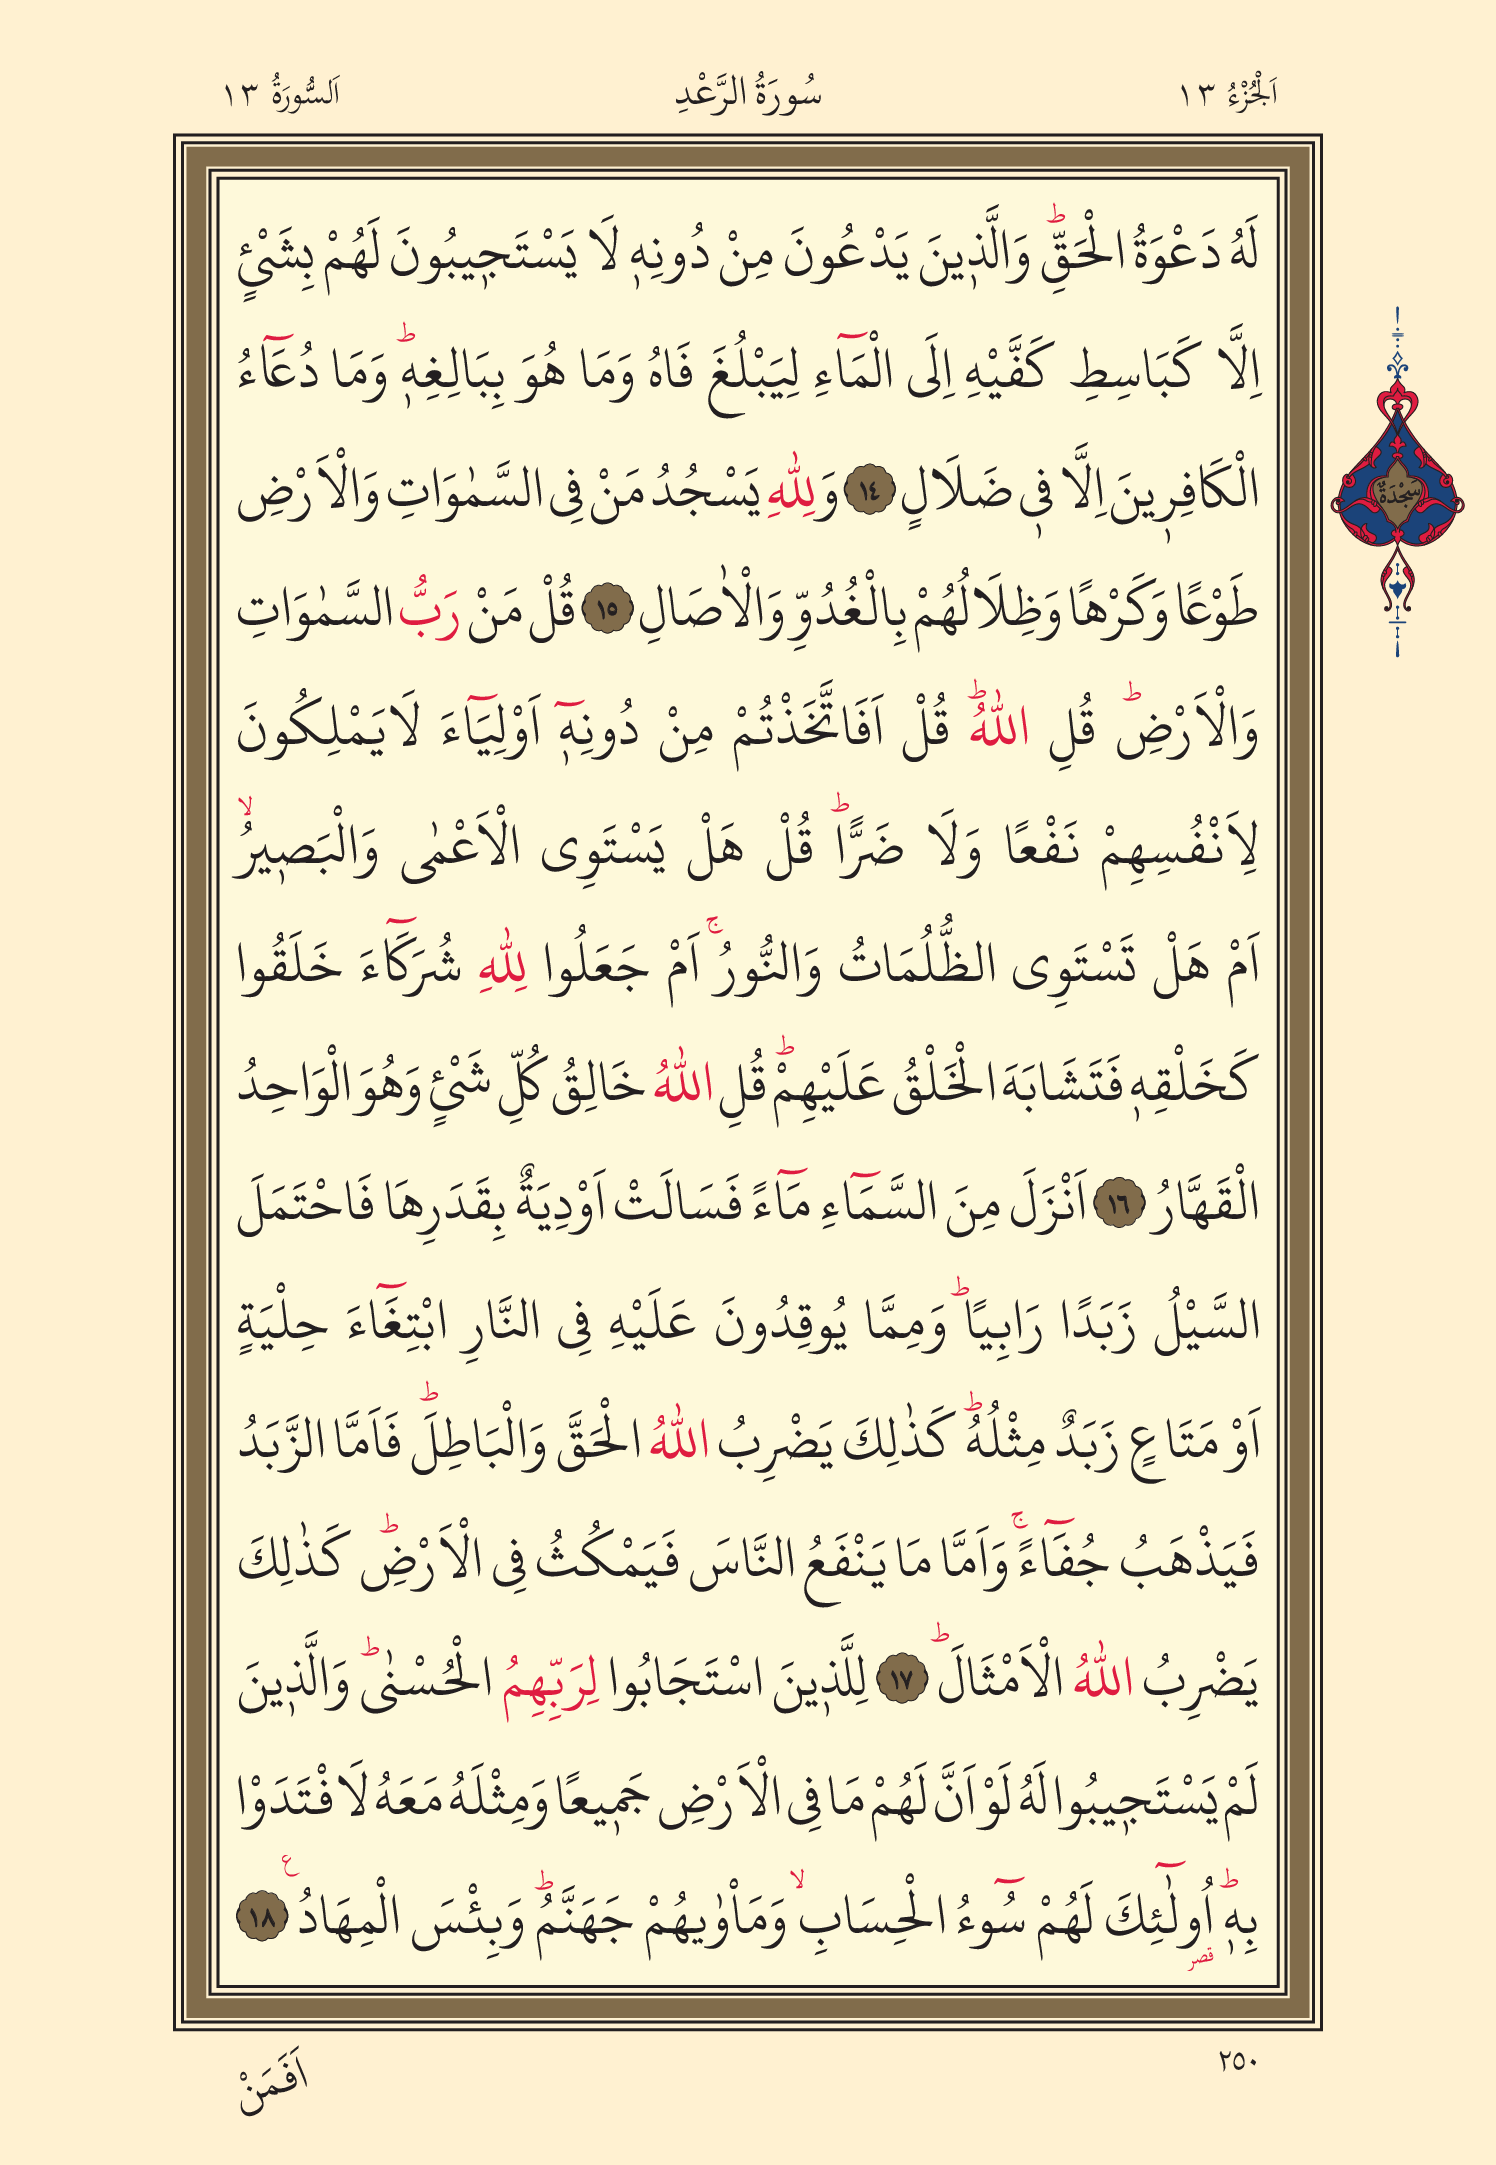 اَلْجُزْءُ ١٣ سُورَةُ الرَّعْدِ اَلسُّورَةُ ١٣
لَهُ دَعْوَةُ الْحَقِّۜ وَالَّذ۪ينَ يَدْعُونَ مِنْ دُونِه۪ لَا يَسْتَج۪يبُونَ لَهُمْ بِشَيْءٍ
اِلَّا كَبَاسِطِ كَفَّيْهِ اِلَى الْمَٓاءِ لِيَبْلُغَ فَاهُ وَمَا هُوَ بِبَالِغِه۪ۜ وَمَا دُعَٓاءُ
الْكَافِر۪ينَ اِلَّا ف۪ي ضَلَالٍ ﴿١٤﴾ وَلِلّٰهِ يَسْجُدُ مَنْ فِي السَّمٰوَاتِ وَالْاَرْضِ
سَجْدَةٌ
طَوْعًا وَكَرْهًا وَظِلَالُهُمْ بِالْغُدُوِّ وَالْاٰصَالِ ﴿١٥﴾ قُلْ مَنْ رَبُّ السَّمٰوَاتِ
وَالْاَرْضِۜ قُلِ اللّٰهُۜ قُلْ اَفَاتَّخَذْتُمْ مِنْ دُونِه۪ٓ اَوْلِيَٓاءَ لَا يَمْلِكُونَ
لِاَنْفُسِهِمْ نَفْعًا وَلَا ضَرًّاۜ قُلْ هَلْ يَسْتَوِي الْاَعْمٰى وَالْبَص۪يرُۙ
اَمْ هَلْ تَسْتَوِي الظُّلُمَاتُ وَالنُّورُۚ اَمْ جَعَلُوا لِلّٰهِ شُرَكَٓاءَ خَلَقُوا
كَخَلْقِه۪ فَتَشَابَهَ الْخَلْقُ عَلَيْهِمْۜ قُلِ اللّٰهُ خَالِقُ كُلِّ شَيْءٍ وَهُوَ الْوَاحِدُ
الْقَهَّارُ ﴿١٦﴾ اَنْزَلَ مِنَ السَّمَٓاءِ مَٓاءً فَسَالَتْ اَوْدِيَةٌ بِقَدَرِهَا فَاحْتَمَلَ
السَّيْلُ زَبَدًا رَابِيًاۜ وَمِمَّا يُوقِدُونَ عَلَيْهِ فِي النَّارِ ابْتِغَٓاءَ حِلْيَةٍ
اَوْ مَتَاعٍ زَبَدٌ مِثْلُهُۜ كَذٰلِكَ يَضْرِبُ اللّٰهُ الْحَقَّ وَالْبَاطِلَۜ فَاَمَّا الزَّبَدُ
فَيَذْهَبُ جُفَٓاءًۚ وَاَمَّا مَا يَنْفَعُ النَّاسَ فَيَمْكُثُ فِي الْاَرْضِۜ كَذٰلِكَ
يَضْرِبُ اللّٰهُ الْاَمْثَالَۜ ﴿١٧﴾ لِلَّذ۪ينَ اسْتَجَابُوا لِرَبِّهِمُ الْحُسْنٰىۜ وَالَّذ۪ينَ
لَمْ يَسْتَج۪يبُوا لَهُ لَوْ اَنَّ لَهُمْ مَا فِي الْاَرْضِ جَم۪يعًا وَمِثْلَهُ مَعَهُ لَافْتَدَوْا
بِه۪ۜ اُو۬لٰٓئِكَ لَهُمْ سُٓوءُ الْحِسَابِۙ وَمَأْوٰيهُمْ جَهَنَّمُۜ وَبِئْسَ الْمِهَادُ۟ ﴿١٨﴾
قصر
٢٥٠
اَفَمَنْ